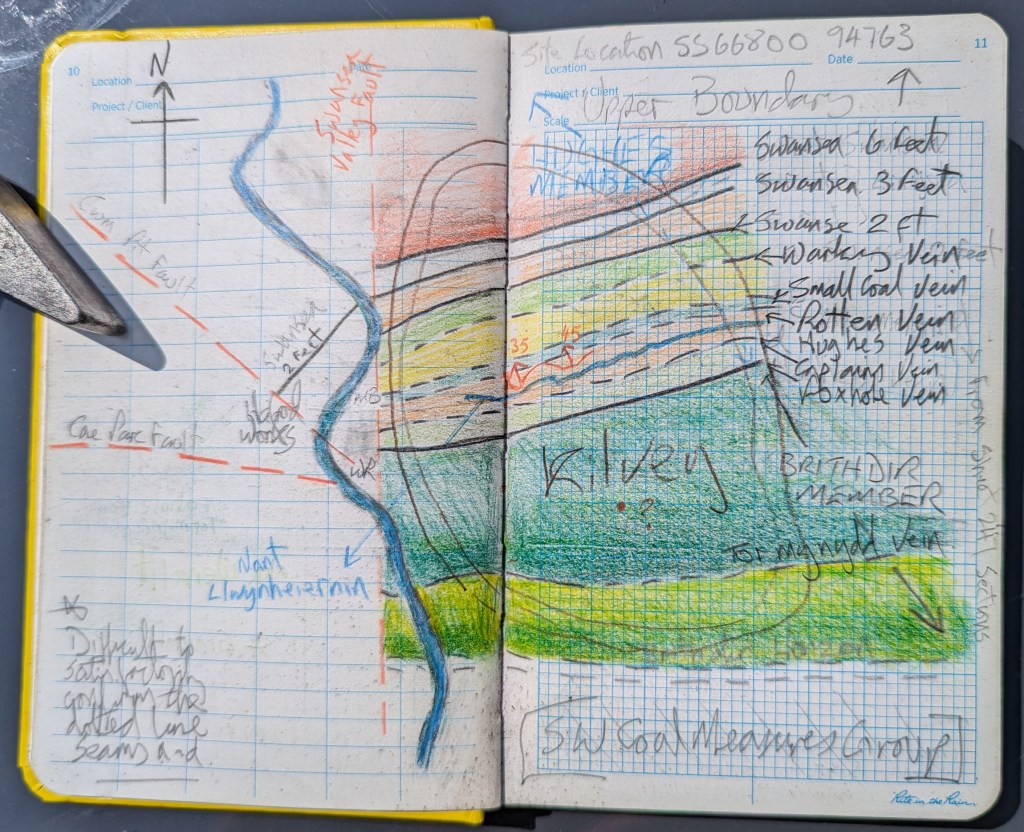 10
N
Location
Project / Client
Swansea
Valley Fault
Cwm
Fault
Swansea
2 Feet
Hafod
Works
Cae Parc Fault
WR
MB
Nant
Llwynheiernin
Difficult to
confirm the
dotted line
seams and
11
Site Location SS66800 94763
Location
Date
Project / Client
Upper Boundary
Scale
HUGHES
MEMBER
Swansea 6 Feet
Swansea 3 Feet
Swanse 2 ft
Vein
Small Coal Vein
Rotten Vein
Hughes Vein
Captain Vein
Foxhole Vein
35
45
Kilvey
?
BRITHDIR
MEMBER
Tormynydd Vein
Horizon
SW Coal Measures Group
Rite in the Rain